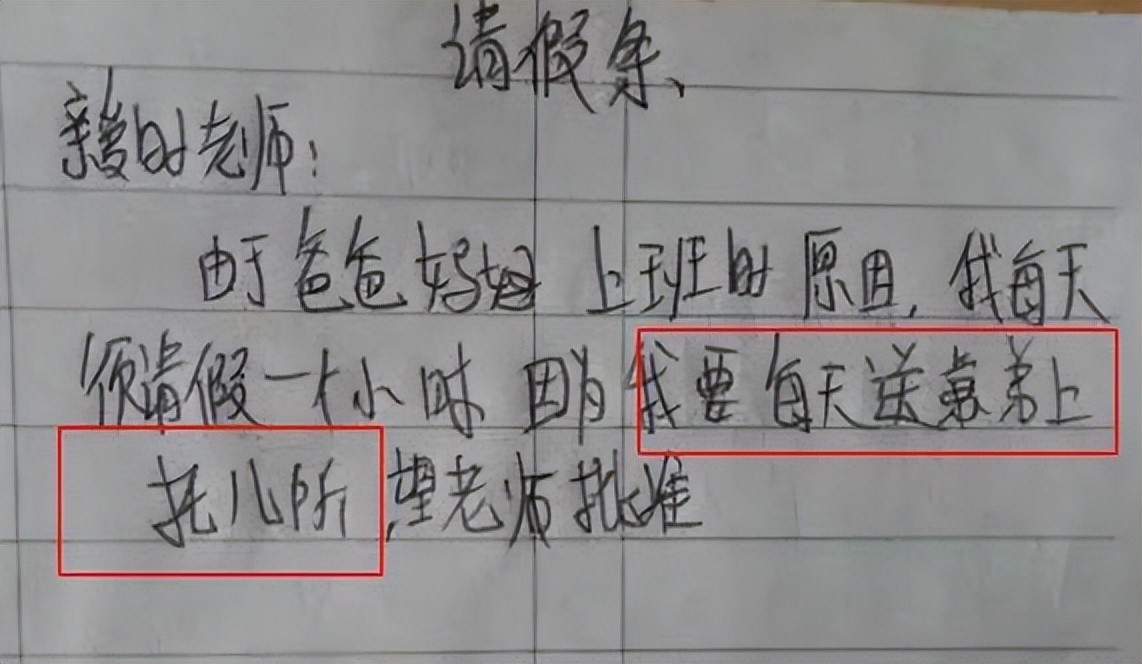 请假条、
亲爱的老师:
由于爸爸妈妈上班的原因,我每天
须请假一个小时因为我要每天送弟弟上
托儿所,望老师批准